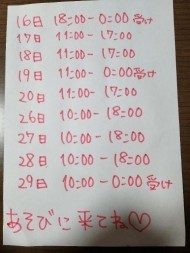 16日 18:00-0:00受け
17日 11:00-17:00
18日 11:00-17:00
19日 11:00-0:00受け
20日 11:00-17:00
26日 10:00-18:00
27日 10:00-18:00
28日 10:00-18:00
29日 10:00-0:00受け
あそびに来てね♡